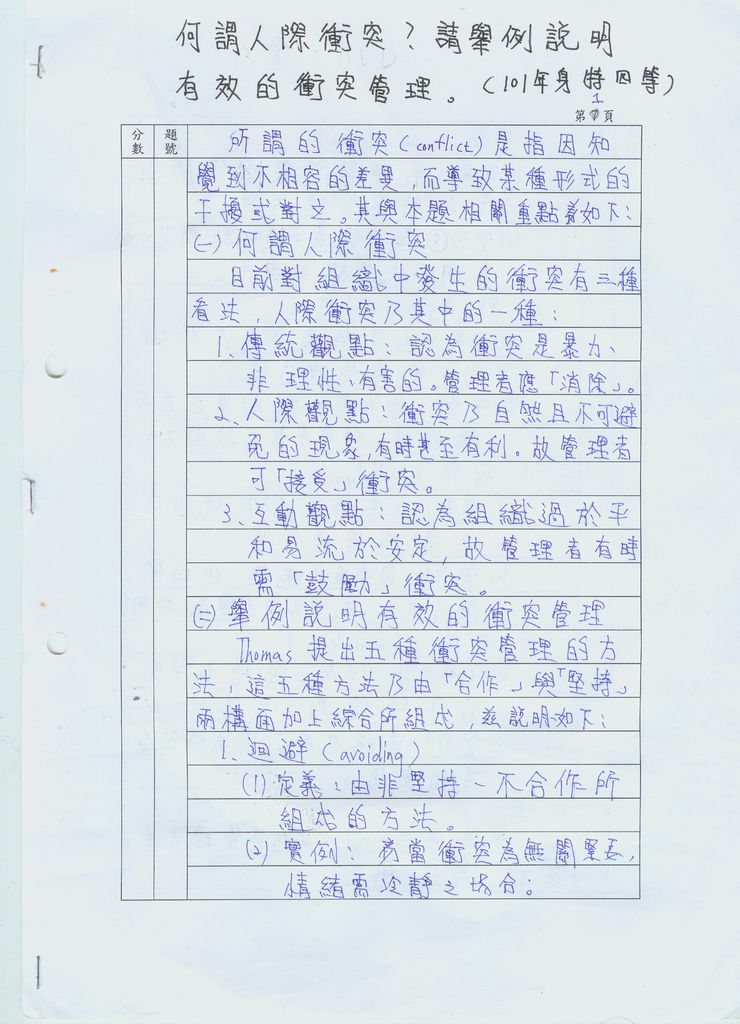 何謂人際衝突?請舉例說明
有效的衝突管理。(101年身特四等)
第1頁
分數
題號
所謂的衝突(conflict)是指因知
覺到不相容的差異,而導致某種形式的
干擾或對立。其與本題相關重點茲如下:
(一)何謂人際衝突
目前對組織中發生的衝突有三種
看法,人際衝突乃其中的一種:
1、傳統觀點:認為衝突是暴力、
非理性、有害的。管理者應「消除」。
2、人際觀點:衝突乃自然且不可避
免的現象,有時甚至有利。故管理者
可「接受」衝突。
3、互動觀點:認為組織過於平
和易流於安定,故管理者有時
需「鼓勵」衝突。
(二)舉例說明有效的衝突管理
Thomas提出五種衝突管理的方
法,這五種方法乃由「合作」與「堅持」
兩構面加上綜合所組成,茲說明如下:
1、迴避(avoiding)
(1)定義:由非堅持-不合作所
組成的方法。
(2)實例:當衝突為無關緊要,
情緒需冷靜之場合。